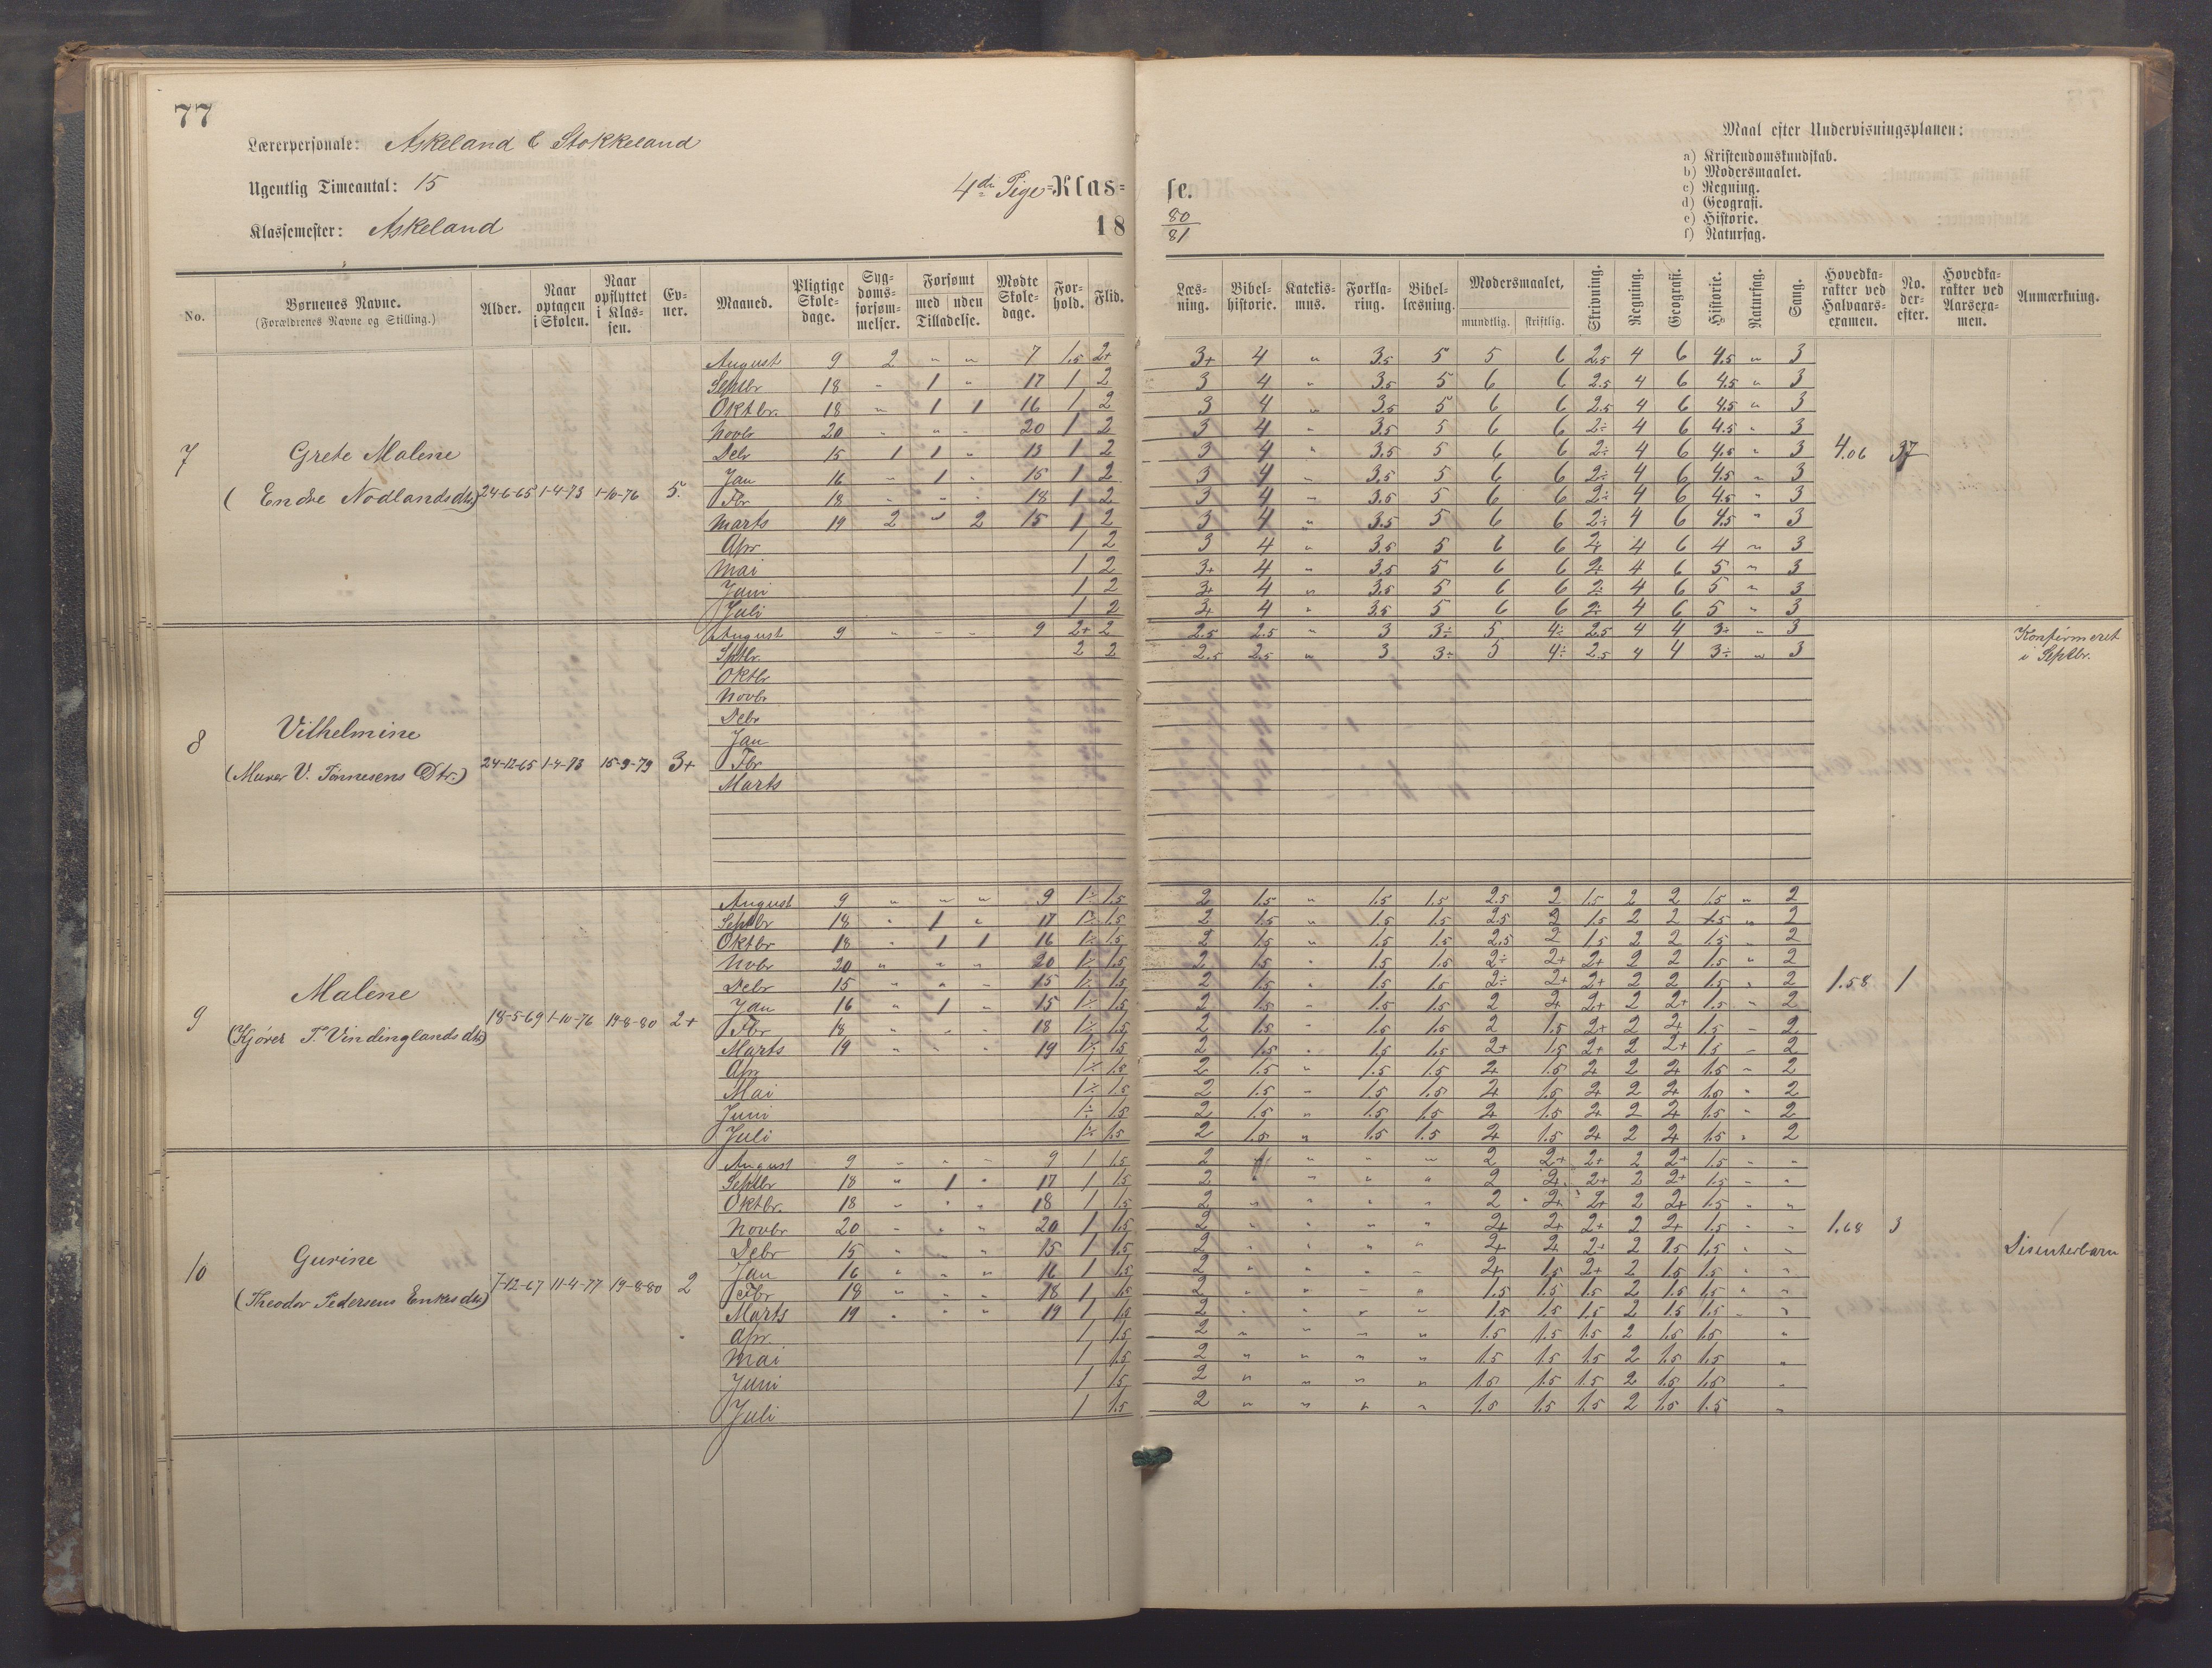 77
Lærerpersonale: Askeland & Stokkeland
Ugentlig Timeantal: 15
4de Pige-Klas-
se.
Klassemester: Askeland
18
80
81
Maal efter Undervisningsplanen:
a) Kristendomskundskab.
b) Modersmaalet.
c) Regning.
d) Geografi.
e) Historie.
f) Naturfag.
No. | Børnenes Navne. (Forældrenes Navne og Stilling.) | Alder. | Naar optagen i Skolen. | Naar opflyttet i Klassen. | Evner. | Maaned. | Pligtige Skoledage. | Sygdomsforsømmelser. | Forsømt med Tilladelse. | uden Tilladelse. | Mødte Skoledage. | Forhold. | Flid. | Læsning. | Bibelhistorie. | Katekismus. | Forklaring. | Bibellæsning. | Modersmaalet, mundtlig. | skriftlig. | Skrivning. | Regning. | Geografi. | Historie. | Naturfag. | Sang. | Hovedkarakter ved Halvaarsexamen. | No. derefter. | Hovedkarakter ved Aarsexamen. | Anmærkning.
7 Grete Malene
(Endre Nodlands dtr) 24-6-65 1-4-73 1-10-76 5. 4.06 37
August 9 2 " " 7 1.5 2+ 3+ 4 " 3.5 5 5 6 2.5 4 6 4.5 " 3
Septbr 18 " 1 " 17 1 2 3 4 " 3.5 5 6 6 2.5 4 6 4.5 " 3
Oktbr. 18 " 1 1 16 1 2 3 4 " 3.5 5 6 6 2.5 4 6 4.5 " 3
Novbr 20 " " " 20 1 2 3 4 " 3.5 5 6 6 2÷ 4 6 4.5 " 3
Debr 15 1 1 " 13 1 2 3 4 " 3.5 5 6 6 2÷ 4 6 4.5 " 3
Jan 16 " 1 " 15 1 2 3 4 " 3.5 5 6 6 2÷ 4 6 4.5 " 3
Fbr 18 " " " 18 1 2 3 4 " 3.5 5 6 6 2÷ 4 6 4.5 " 3
Marts 19 2 " 2 15 1 2 3 4 " 3.5 5 6 6 2÷ 4 6 4.5 " 3
Apr 1 2 3 4 " 3.5 5 6 6 2÷ 4 6 4 " 3
Mai 1 2 3+ 4 " 3.5 5 6 6 2÷ 4 6 5 " 3
Juni 1 2 3+ 4 " 3.5 5 6 6 2÷ 4 6 5 " 3
Juli 1 2 3+ 4 " 3.5 5 6 6 2÷ 4 6 5 " 3
8 Vilhelmine
(Murer V. Tønnesens Dtr.) 24-12-65 1-4-73 15-9-79 3+
Konfirmeret
i Septbr.
August 9 " " " 9 2+ 2 2.5 2.5 " 3 3÷ 5 4÷ 2.5 4 4 3÷ " 3
Septbr. 2 2 2.5 2.5 " 3 3÷ 5 4÷ 2.5 4 4 3÷ " 3
Oktbr
Novbr
Debr
Jan
Fbr
Marts
9 Malene
(Kjører T. Vindinglands dtr) 18-5-69 1-10-76 19-8-80 2+ 1.58 1
August 9 " " " 9 1÷ 1.5 2 1.5 " 1.5 1.5 2.5 2 1.5 2 2 1.5 " 2
Septbr 18 " 1 " 17 1÷ 1.5 2 1.5 " 1.5 1.5 2.5 2 1.5 2 2 1.5 " 2
Oktbr 18 " 1 1 16 1÷ 1.5 2 1.5 " 1.5 1.5 2.5 2 1.5 2 2 1.5 " 2
Novbr 20 " " " 20 1÷ 1.5 2 1.5 " 1.5 1.5 2÷ 2+ 2+ 2 2 1.5 " 2
Debr 15 " " " 15 1÷ 1.5 2 1.5 " 1.5 1.5 2÷ 2+ 2+ 2 2 1.5 " 2
Jan 16 " 1 " 15 1÷ 1.5 2 1.5 " 1.5 1.5 2 2+ 2+ 2 2+ 1.5 " 2
Fbr 18 " " " 18 1÷ 1.5 2 1.5 " 1.5 1.5 2 1.5 2+ 2 2+ 1.5 " 2
Marts 19 " " " 19 1÷ 1.5 2 1.5 " 1.5 1.5 2+ 1.5 2+ 2 2+ 1.5 " 2
Apr 1÷ 1.5 2 1.5 " 1.5 1.5 2+ 1.5 2+ 2 2+ 1.5 " 2
Mai 1÷ 1.5 2 1.5 " 1.5 1.5 2+ 1.5 2+ 2 2+ 1.5 " 2
Juni 1÷ 1.5 2 1.5 " 1.5 1.5 2+ 1.5 2+ 2 2+ 1.5 " 2
Juli 1÷ 1.5 2 1.5 " 1.5 1.5 2+ 1.5 2+ 2 2+ 1.5 " 2
10 Gurine
(Theodor Pedersens Enkes dtr) 7-12-67 11-4-77 19-8-80 2 1.68 3
Disenterbarn
August 9 " " " 9 1 1.5 2 " " " 2 2+ 2+ 2 2+ 1.5 " "
Septbr 18 " 1 " 17 1 1.5 2 " " " " 2 2+ 2+ 2 2+ 1.5 " "
Oktbr. 18 " " " 18 1 1.5 2 " " " " 2 2+ 2+ 2 2+ 1.5 " "
Novbr 20 " " " 20 1 1.5 2 " " " " 2+ 2+ 2+ 2 2+ 1.5 " "
Debr 15 " " " 15 1 1.5 2 " " " " 2+ 2+ 2+ 2 1.5 1.5 " "
Jan 16 " " " 16 1 1.5 2 " " " " 2+ 1.5 2+ 2 1.5 1.5 " "
Fbr 18 " " " 18 1 1.5 2 " " " " 1.5 1.5 1.5 2 1.5 1.5 " "
Marts 19 " " " 19 1 1.5 2 " " " " 1.5 1.5 1.5 2 1.5 1.5 " "
Apr. 1 1.5 2 " " " " 1.5 1.5 1.5 2 1.5 1.5 "
Mai 1 1.5 2 " " " " 1.5 1.5 1.5 2 1.5 1.5 "
Juni 1 1.5 2 " " " " 1.5 1.5 1.5 2 1.5 1.5 "
Juli 1 1.5 2 " " " " 1.5 1.5 1.5 2 1.5 1.5 "